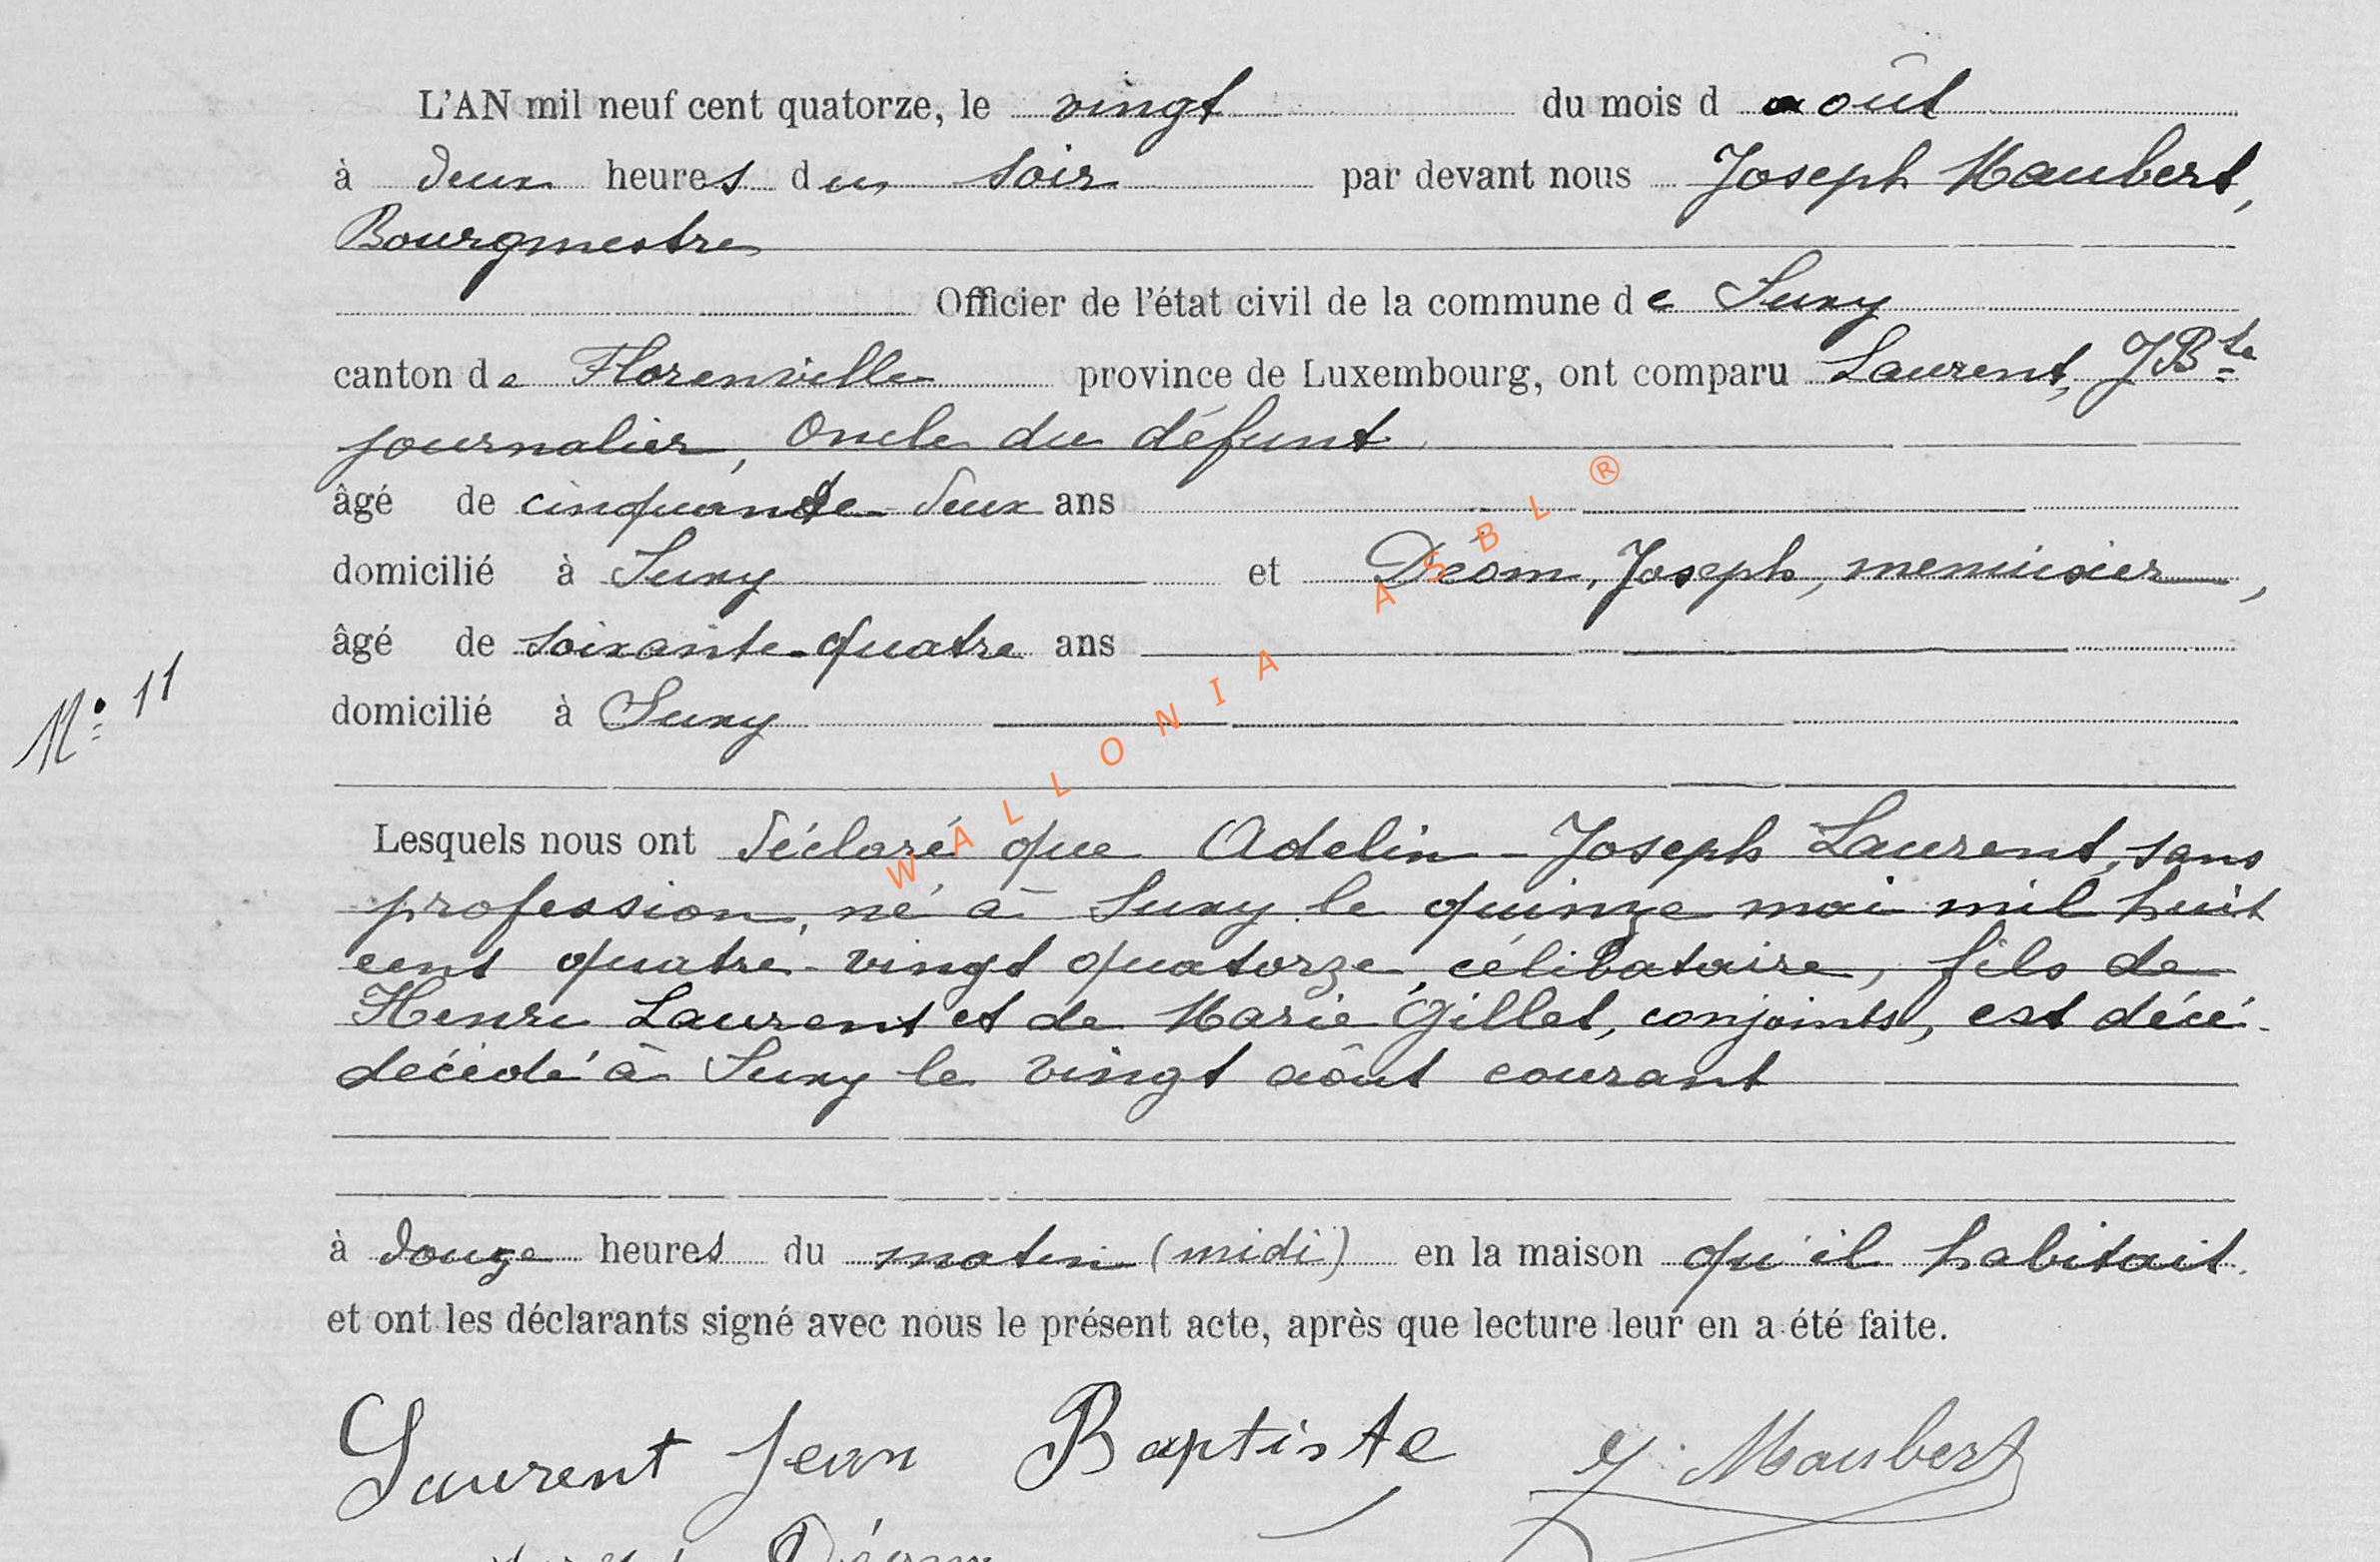 L'AN mil neuf cent quatorze, le vingt du mois d août
à deux heures du soir par devant nous Joseph Maubert,
Bourgmestre
Officier de l'état civil de la commune de Suxy
canton de Florenville province de Luxembourg, ont comparu Laurent, JBte
journalier, Oncle du défunt
âgé de cinquante-deux ans
domicilié à Suxy et Déom, Joseph, menuisier,
âgé de soixante-quatre ans
domicilié à Suxy
N° 11
Lesquels nous ont déclaré que Adelin-Joseph Laurent, sans
profession, né à Suxy le quinze mai mil huit
cent quatre-vingt quatorze, célibataire, fils de
Henri Laurent et de Marie Gillet, conjoints, est décé-
décédé à Suxy le vingt août courant
à douze heures du matin (midi) en la maison qu'il habitait.
et ont les déclarants signé avec nous le présent acte, après que lecture leur en a été faite.
Laurent Jean Baptiste J. Maubert
Déom
WALLONIA ASBL ®